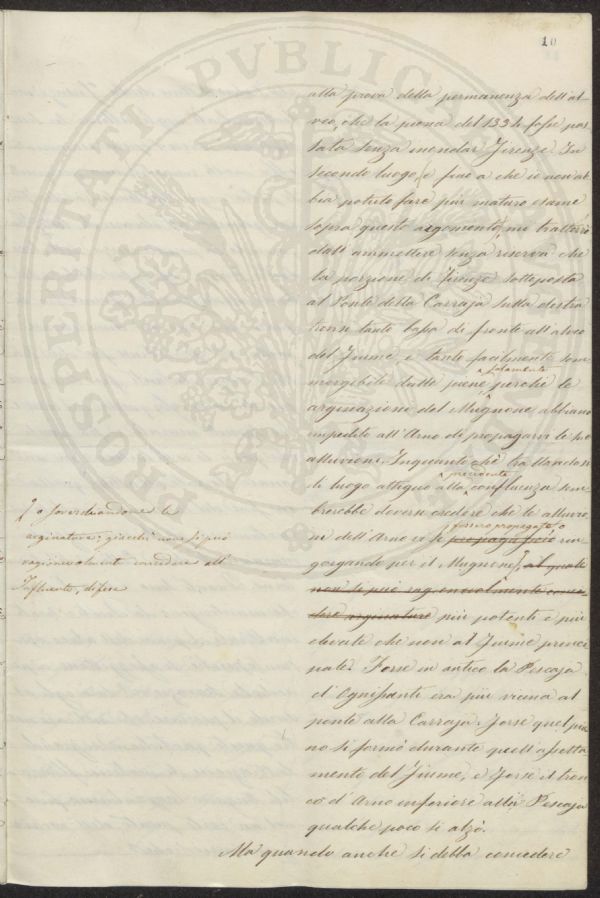 10
alla prova della permanenza dell'al-
veo, che la piena del 1334 fosse pas-
sata senza inondar Firenze. In
secondo luogo, e fino a che io non ab-
bia potuto fare più maturo esame
sopra questo argomento, mi tratterrò
dall'ammettere senza riserva che
la porzione di Firenze sottoposta
al Ponte della Carraja sulla destra
trovisi tanto bassa di fronte all'alveo
del Fiume, e tanto facilmente som-
solamente
mergibile dalle piene perchè le
arginazioni del Mugnone abbiano
impedito all'Arno di propagarvi le sue
alluvioni. Inquantochè trattandosi
precedente
di luogo attiguo alla confluenza sem-
brerebbe doversi credere che le alluvio-
fossero propagate, o
ni dell'Arno vi si propagassero rin-
gorgando per il Mugnone, al quale
non si può ragionevolmente conce-
dere arginature più potenti e più
elevate che non al Fiume princi-
pale. Forse in antico la Pescaja
d'Ognissanti era più vicina al
ponte alla Carraja. Forse quel pia-
no si formò durante quell'assetta-
mento del Fiume, e forse il tron-
co d'Arno inferiore alla Pescaja
qualche poco si alzò.
Ma quando anche si debba concedere
o soverchiandone le
arginature; giacchè non si può
ragionevolmente concedere all'
Influente, difese
PROSPERITATI PVBLIC